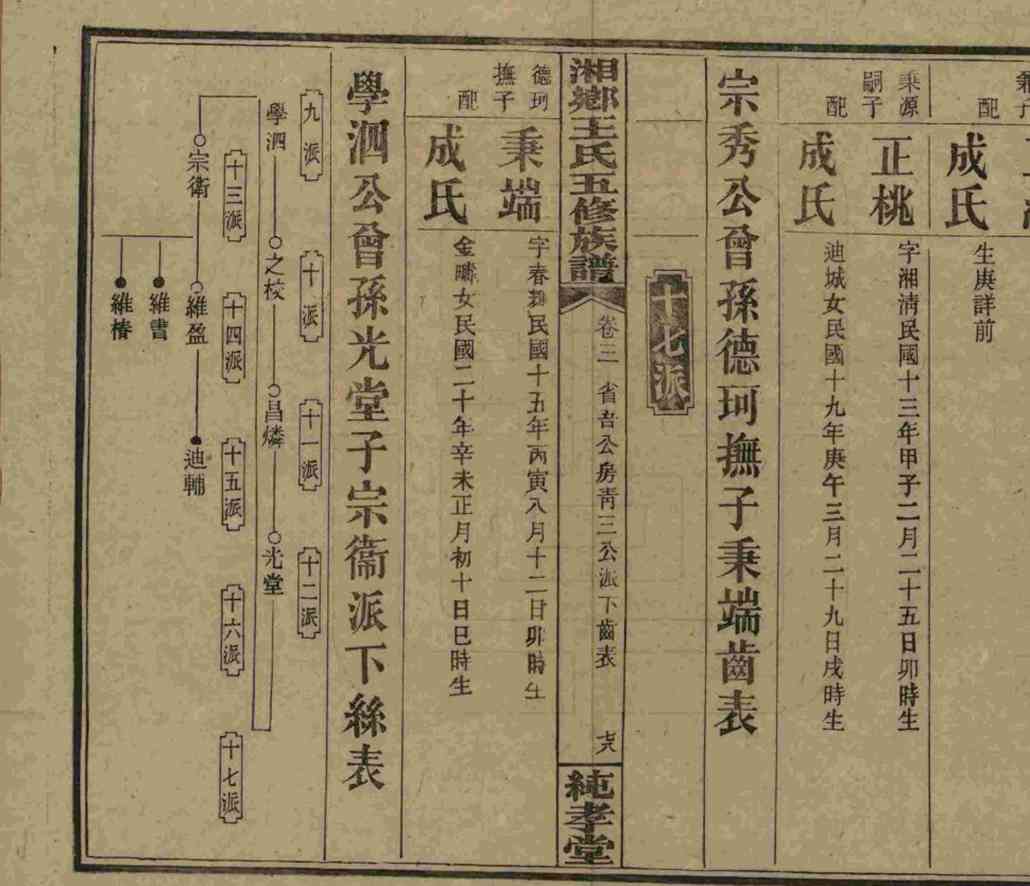 配
成氏
生庚詳前
秉源
嗣子
正桃
字湘清民國十三年甲子二月二十五日卯時生
配
成氏
迪城女民國十九年庚午三月二十九日戌時生
宗秀公曾孫德珂撫子秉端齒表
十七派
湘鄉王氏五修族譜
卷三
省吾公房青三公派下齒表
純孝堂
德珂
撫子
秉端
字春類民國十五年丙寅八月十二日卯時生
配
成氏
金疄女民國二十年辛未正月初十日巳時生
學泗公曾孫光堂子宗衞派下絲表
九派
十派
十一派
十二派
學泗
之校
昌燐
光堂
十三派
十四派
十五派
十六派
十七派
宗衛
維盈
迪輔
維書
維椿